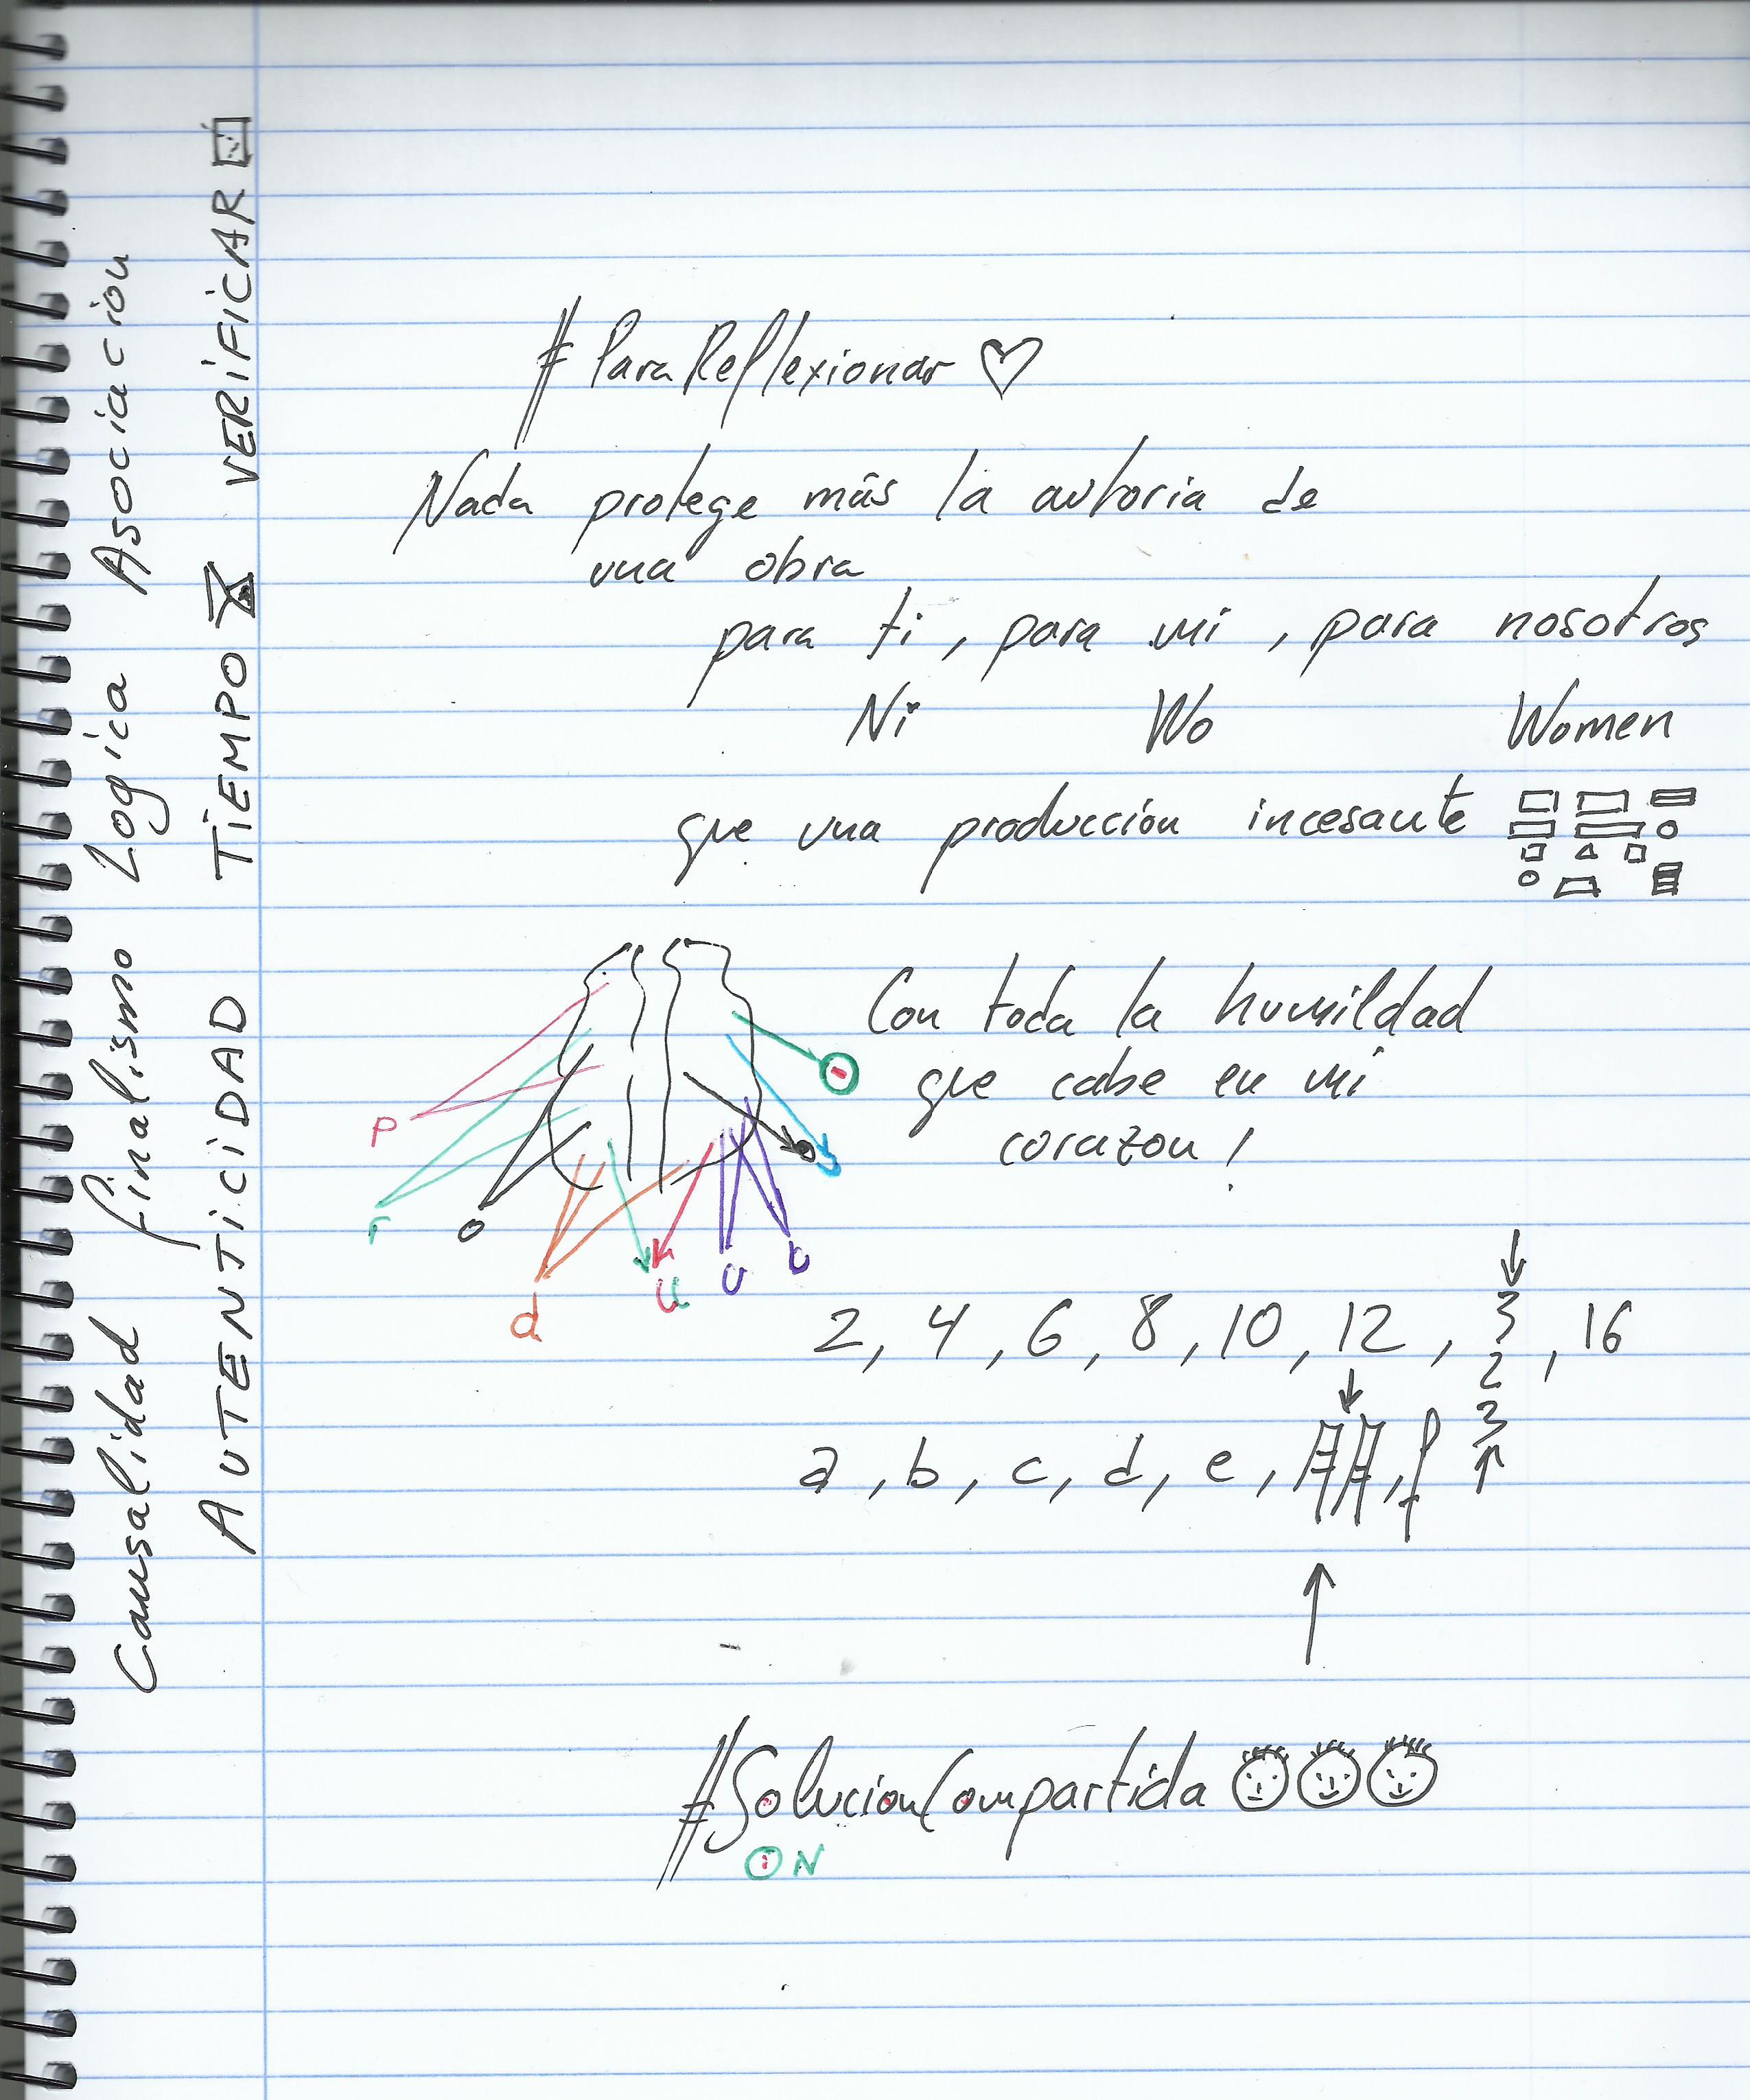 Causalidad finalismo Logica Asociacion
AUTENTiCiDAD TiEMPO VERiFiCAR
#ParaReflexionar
Nada protege más la autoria de
una obra
para ti, para mi, para nosotros
Ni Wo Women
que una producción incesante
Con toda la humildad
que cabe en mi
corazon!
P
r
o
d
u
U
c
2, 4, 6, 8, 10, 12, 3, 16
2
3
a, b, c, d, e, , f
#SolucionCompartida
ON